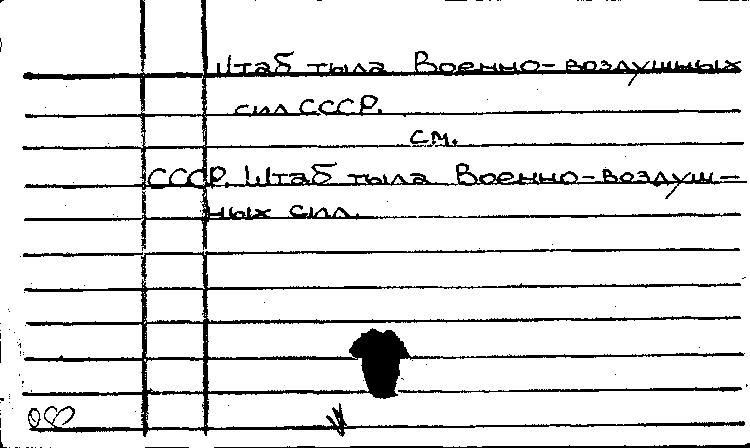 Штаб тыла Военно-воздушных
сил СССР.
см.
СССР. Штаб тыла Военно-воздуш-
ных сил.